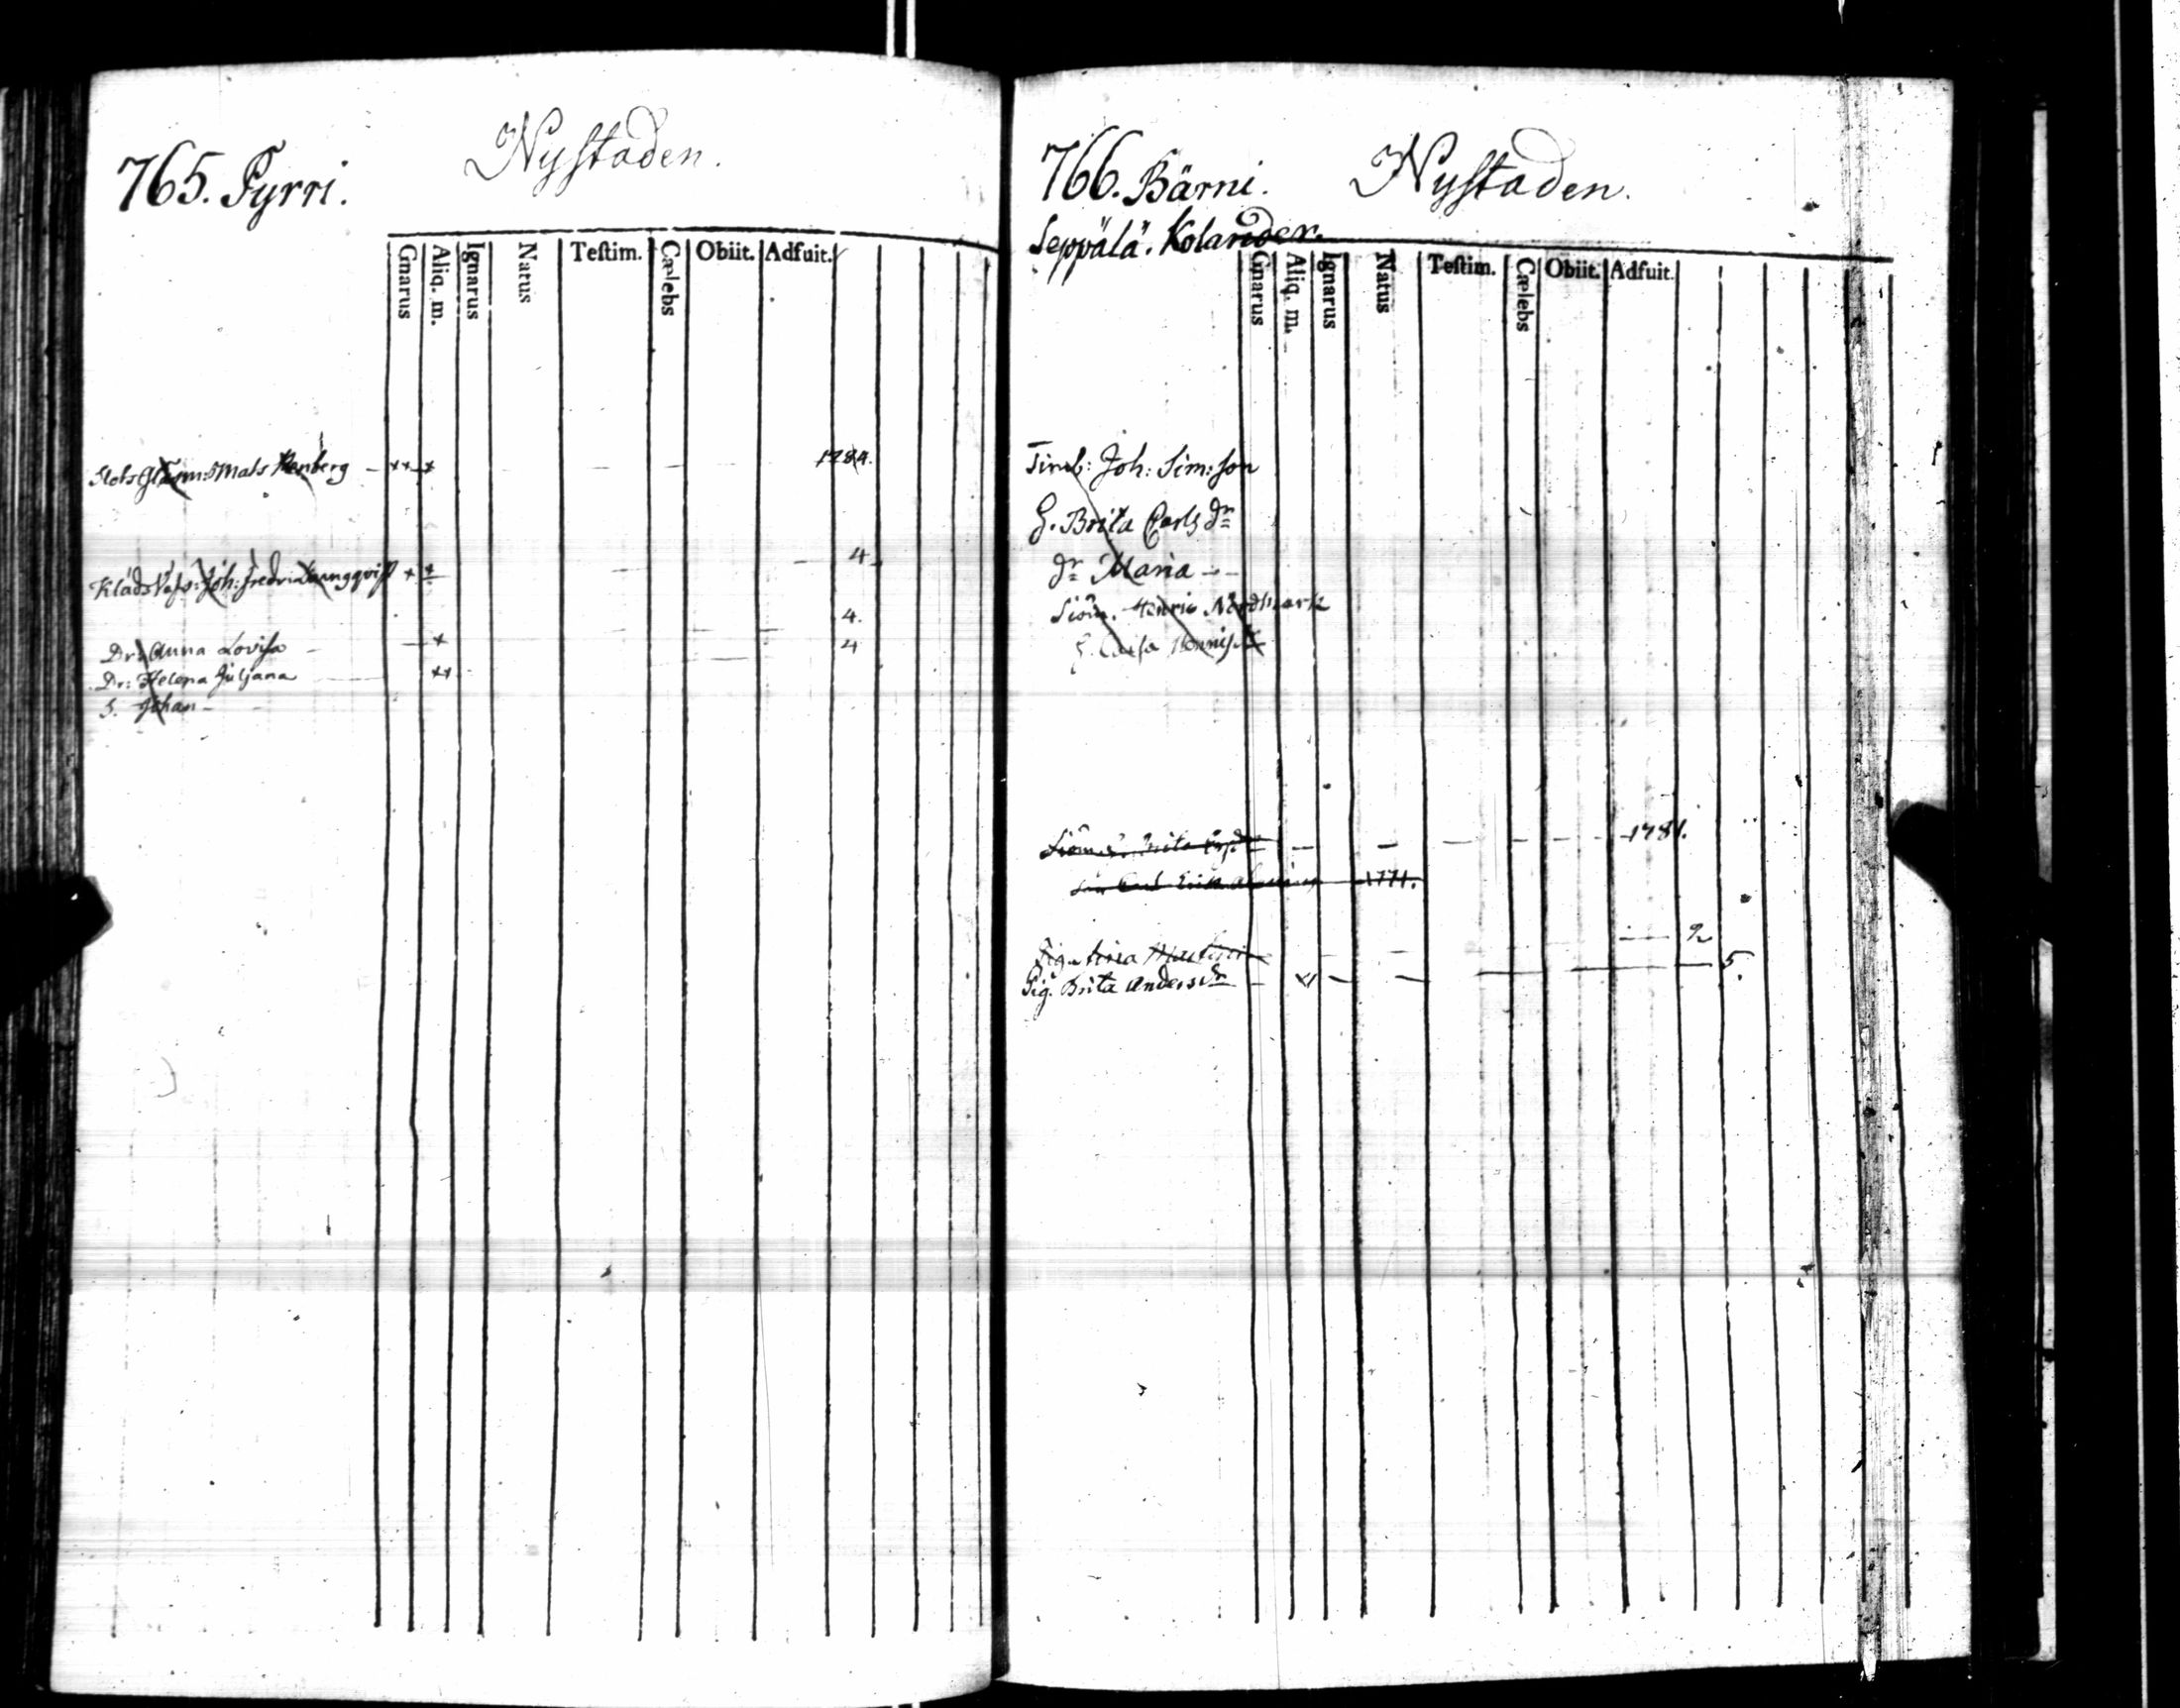 765. Tyrri.
Nystaden.
Gnarus Aliq. m. Ignarus Natus Testim. Cælebs Obiit. Adfuit.
Mats Renberg - ++ + - - 1784.
Joh: Fredric Ljungqvist + + - - 4.
4.
Dr: Anna Lovisa - - + 4
Dr: Helena Juljana ++
S. Johan -
766. Bärni.
Nystaden.
Seppälä. Kolander.
Gnarus Aliq. m. Ignarus Natus Testim. Cælebs Obiit. Adfuit.
Joh: Sim:son
H. Brita Carls dr
dr Maria - -
Siöm. Henric Nordmark
H. Caisa
Brita - - - - - 1781.
1771.
Pig. - - 2
Pig. Brita Anders dr - - - - - 5.